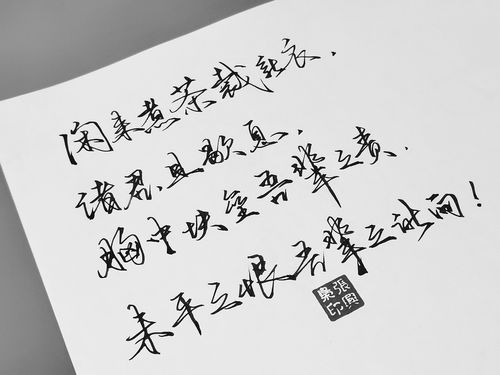 闲来煮茶裁新衣、
诸君且歇息、
胸中块垒吾辈之责、
未平之恨吾辈之试问!
張興
梟印